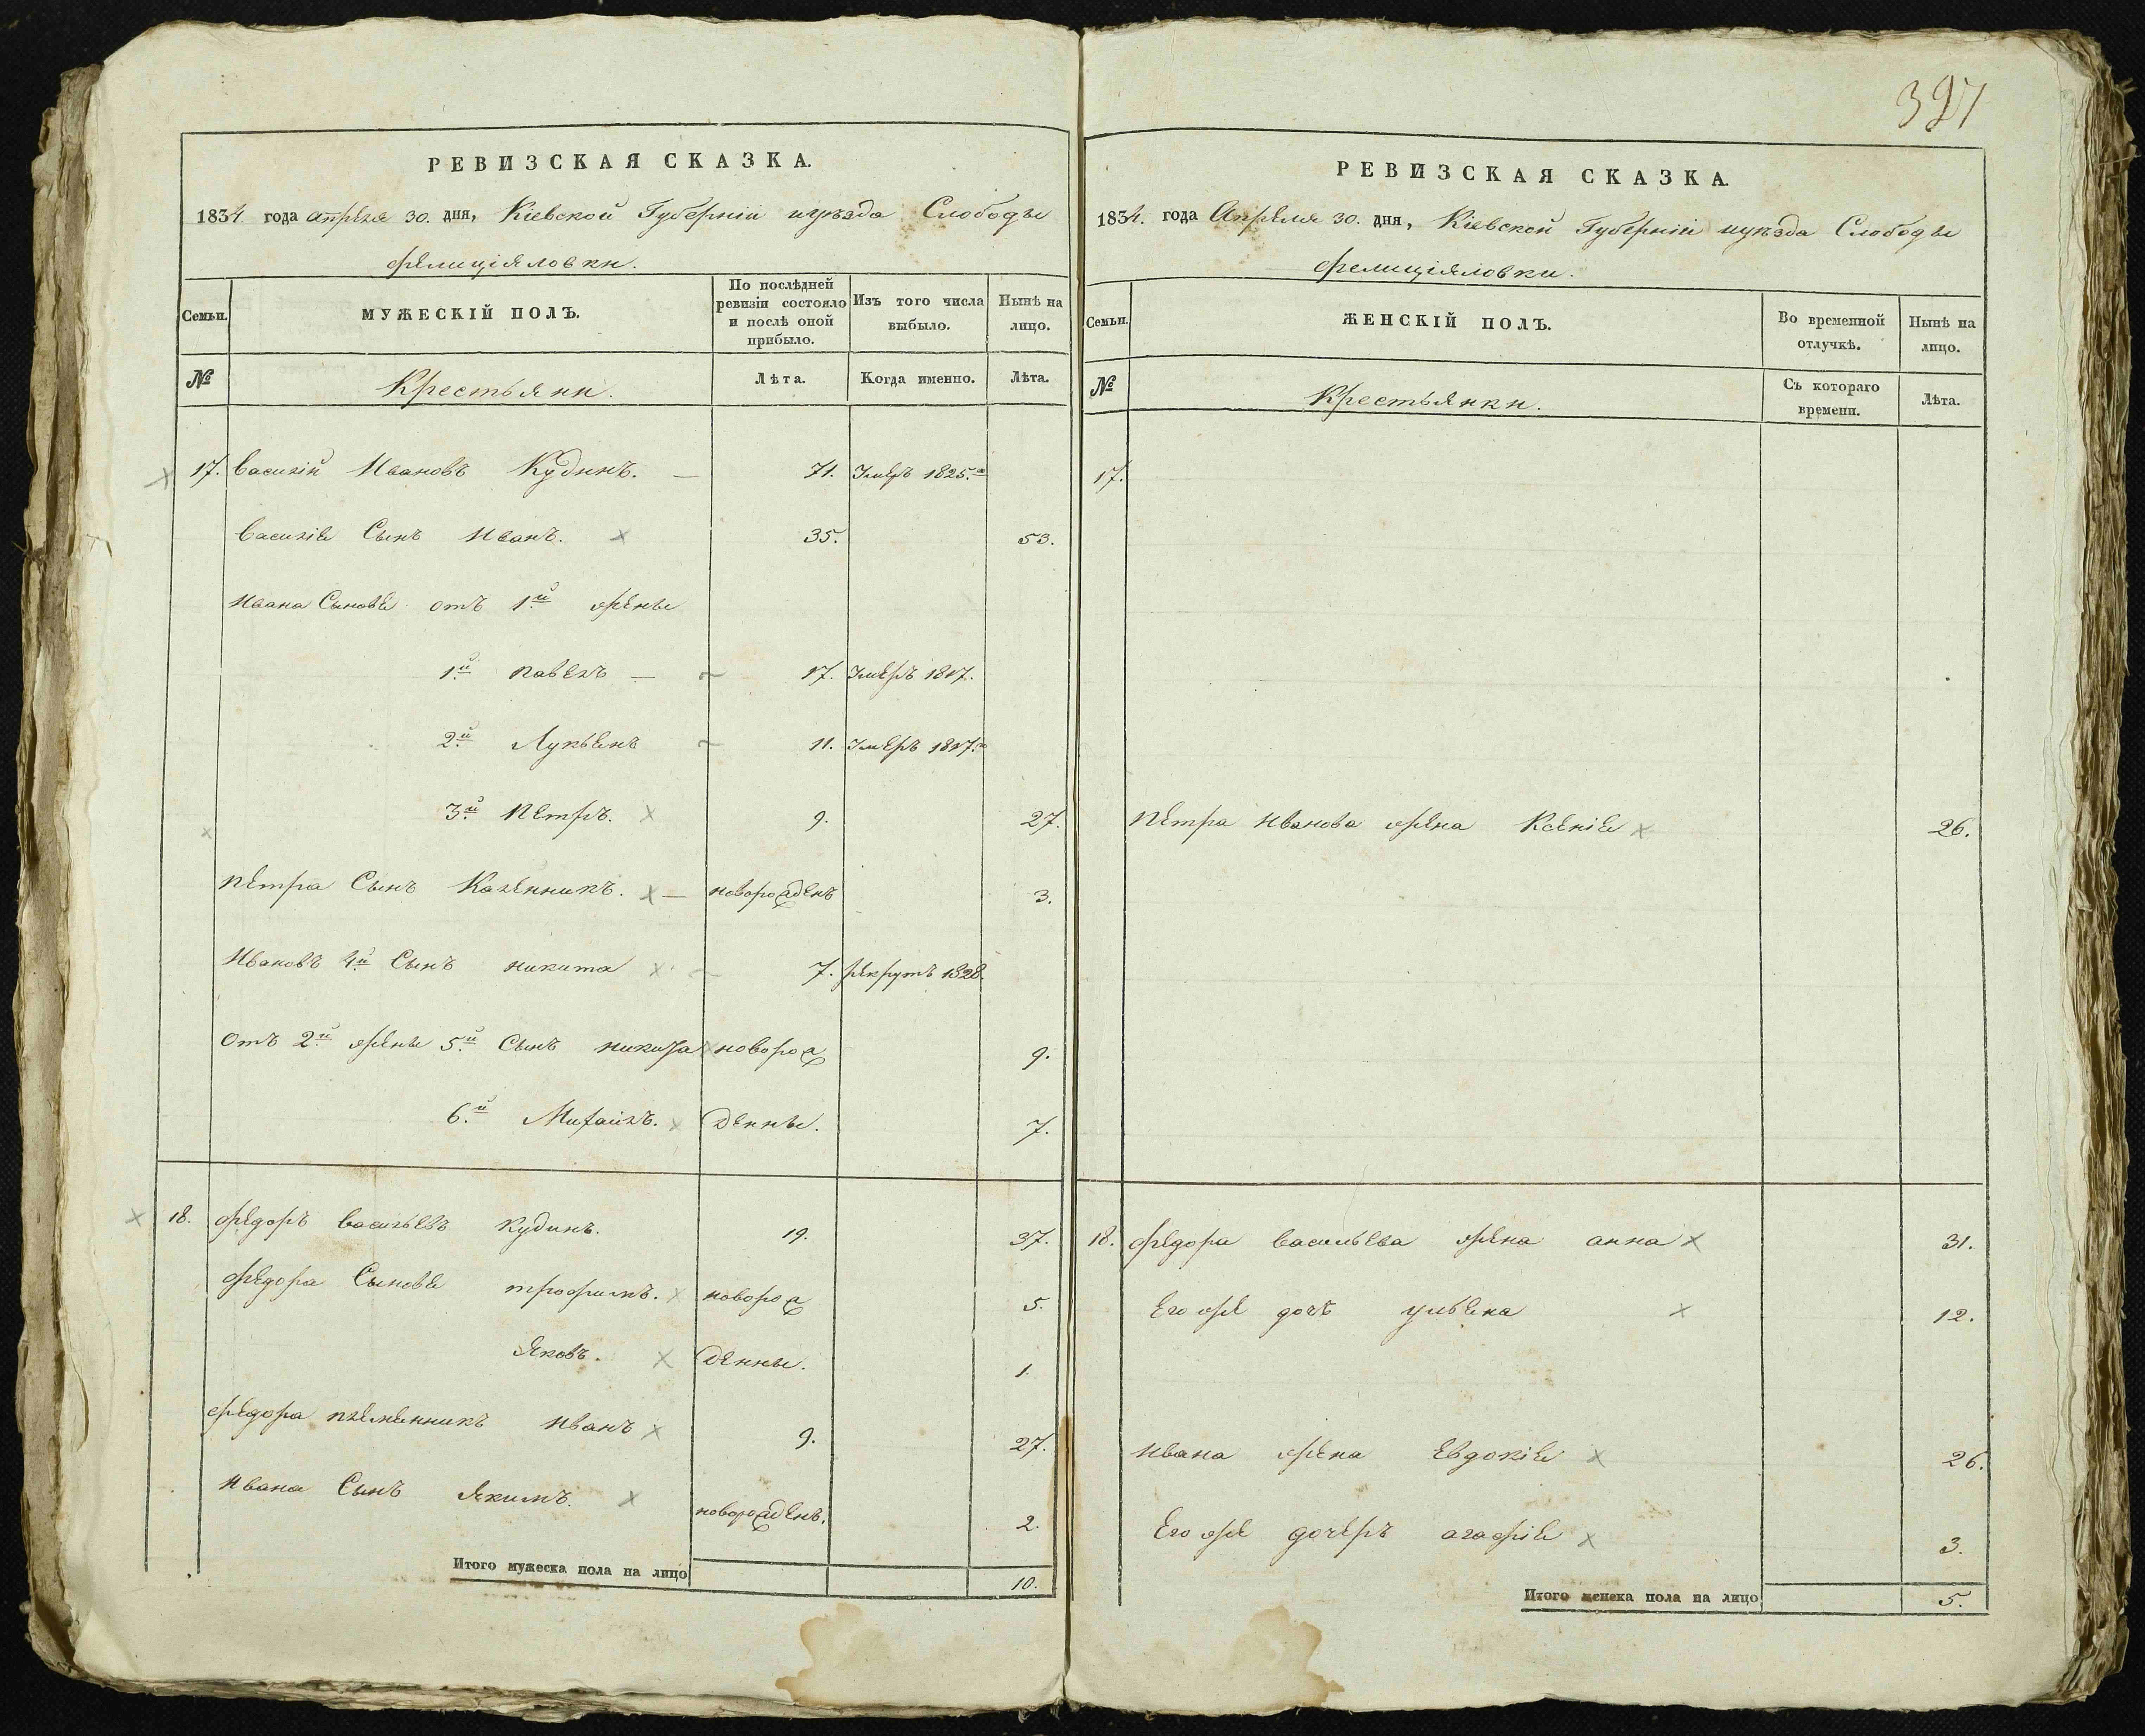 397
РЕВИЗСКАЯ СКАЗКА.
1834. года Апрѣля 30. дня, Кіевской Губерніи иуѣзда Слободы
Фелиціяловки.
Семьи.
МУЖЕСКІЙ ПОЛЪ.
По послѣдней ревизіи состояло и послѣ оной прибыло.
Изъ того числа выбыло.
Нынѣ на лицо.
№
Крестьяни.
Лѣта.
Когда именно.
Лѣта.
17. Василій Ивановъ Кудинъ. — 71. Умеръ 1825.го
Василія Сынъ Иванъ. 35. 53.
Ивана Сыновья отъ 1й жены
1й Павелъ — 17. Умеръ 1817.
2й Лукьянъ 11. Умеръ 1817.го
3й Петръ. 9. 27.
Петра Сынъ Каленникъ. — новорожденъ 3.
Ивановъ 4й Сынъ никита 7. рекрутъ 1828.
отъ 2й жены 5й Сынъ никита новорож 9.
6.й Михаилъ. денны. 7.
18. Федоръ васильевъ кудинъ. 19. 37.
Федора Сыновья трофимъ. новорож 5.
Яковъ. денны. 1.
Федора племенникъ иванъ 9. 27.
Ивана Сынъ Якимъ. новорожденъ. 2.
Итого мужеска пола на лицо 10.
РЕВИЗСКАЯ СКАЗКА.
1834. года Апрѣля 30. дня, Кіевской Губерніи иуѣзда Слободы
Фелиціяловки.
Семьи.
ЖЕНСКІЙ ПОЛЪ.
Во временной отлучкѣ.
Нынѣ на лицо.
№
Крестьянки.
Съ котораго времени.
Лѣта.
17.
Петра Иванова жена Ксенія 26.
18. Федора васильева жена анна 31.
Его же дочъ ульяна 12.
Ивана жена Евдокія 26.
Его же дочеръ агафія 3.
Итого женска пола на лицо 5.